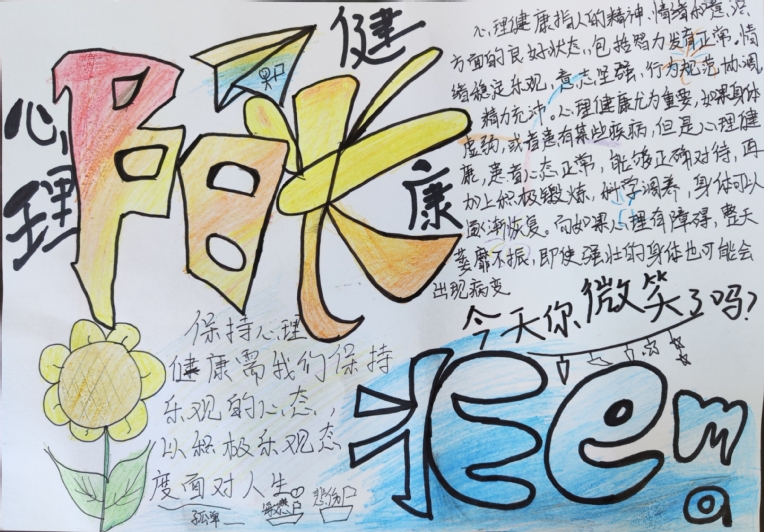 心理
健
康
阳光
心理健康指人的精神、情绪和意识
方面的良好状态,包括智力发育正常,情
绪稳定乐观,意志坚强,行为规范协调,
精力充沛。心理健康尤为重要,如果身体
虚弱,或者患有某些疾病,但是心理健
康,患者心态正常,能够正确对待,再
加上积极锻炼,科学调养,身体可以
逐渐恢复。而如果心理有障碍,整天
萎靡不振,即使强壮的身体也可能会
出现病变
今天你微笑了吗?
保持心理
健康需我们保持
乐观的心态,
以积极乐观态
度面对人生
孤单
悲伤
em